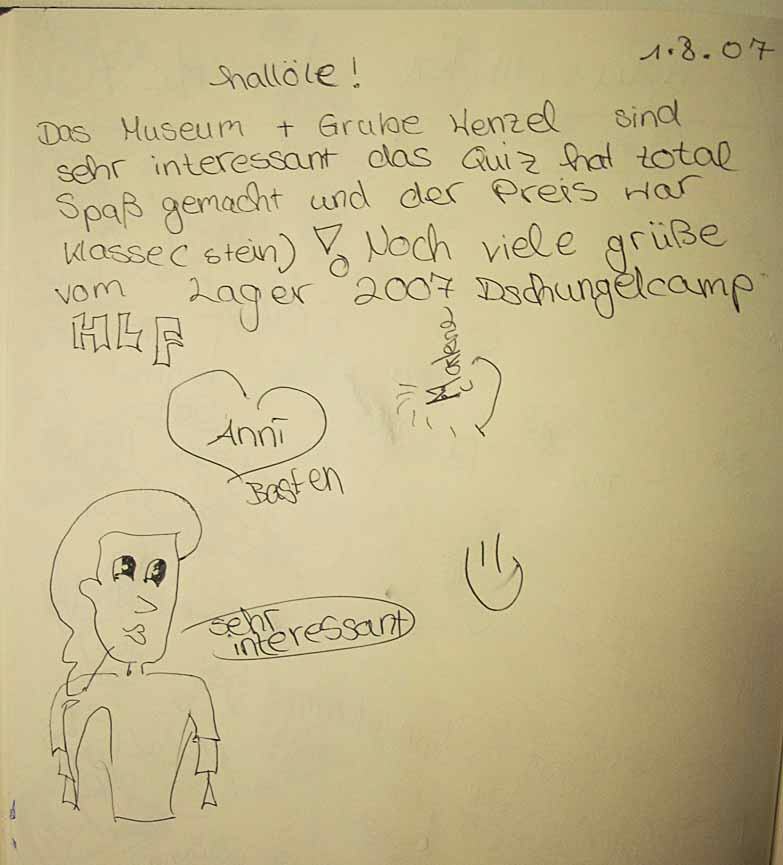 1.8.07
hallöle!
Das Museum + Grube Wenzel sind
sehr interessant das Quiz hat total
Spaß gemacht und der Preis war
klasse (stein)! Noch viele grüße
vom Lager 2007 Dschungelcamp
HLF
Marlena
Anni
Basten
sehr
interessant